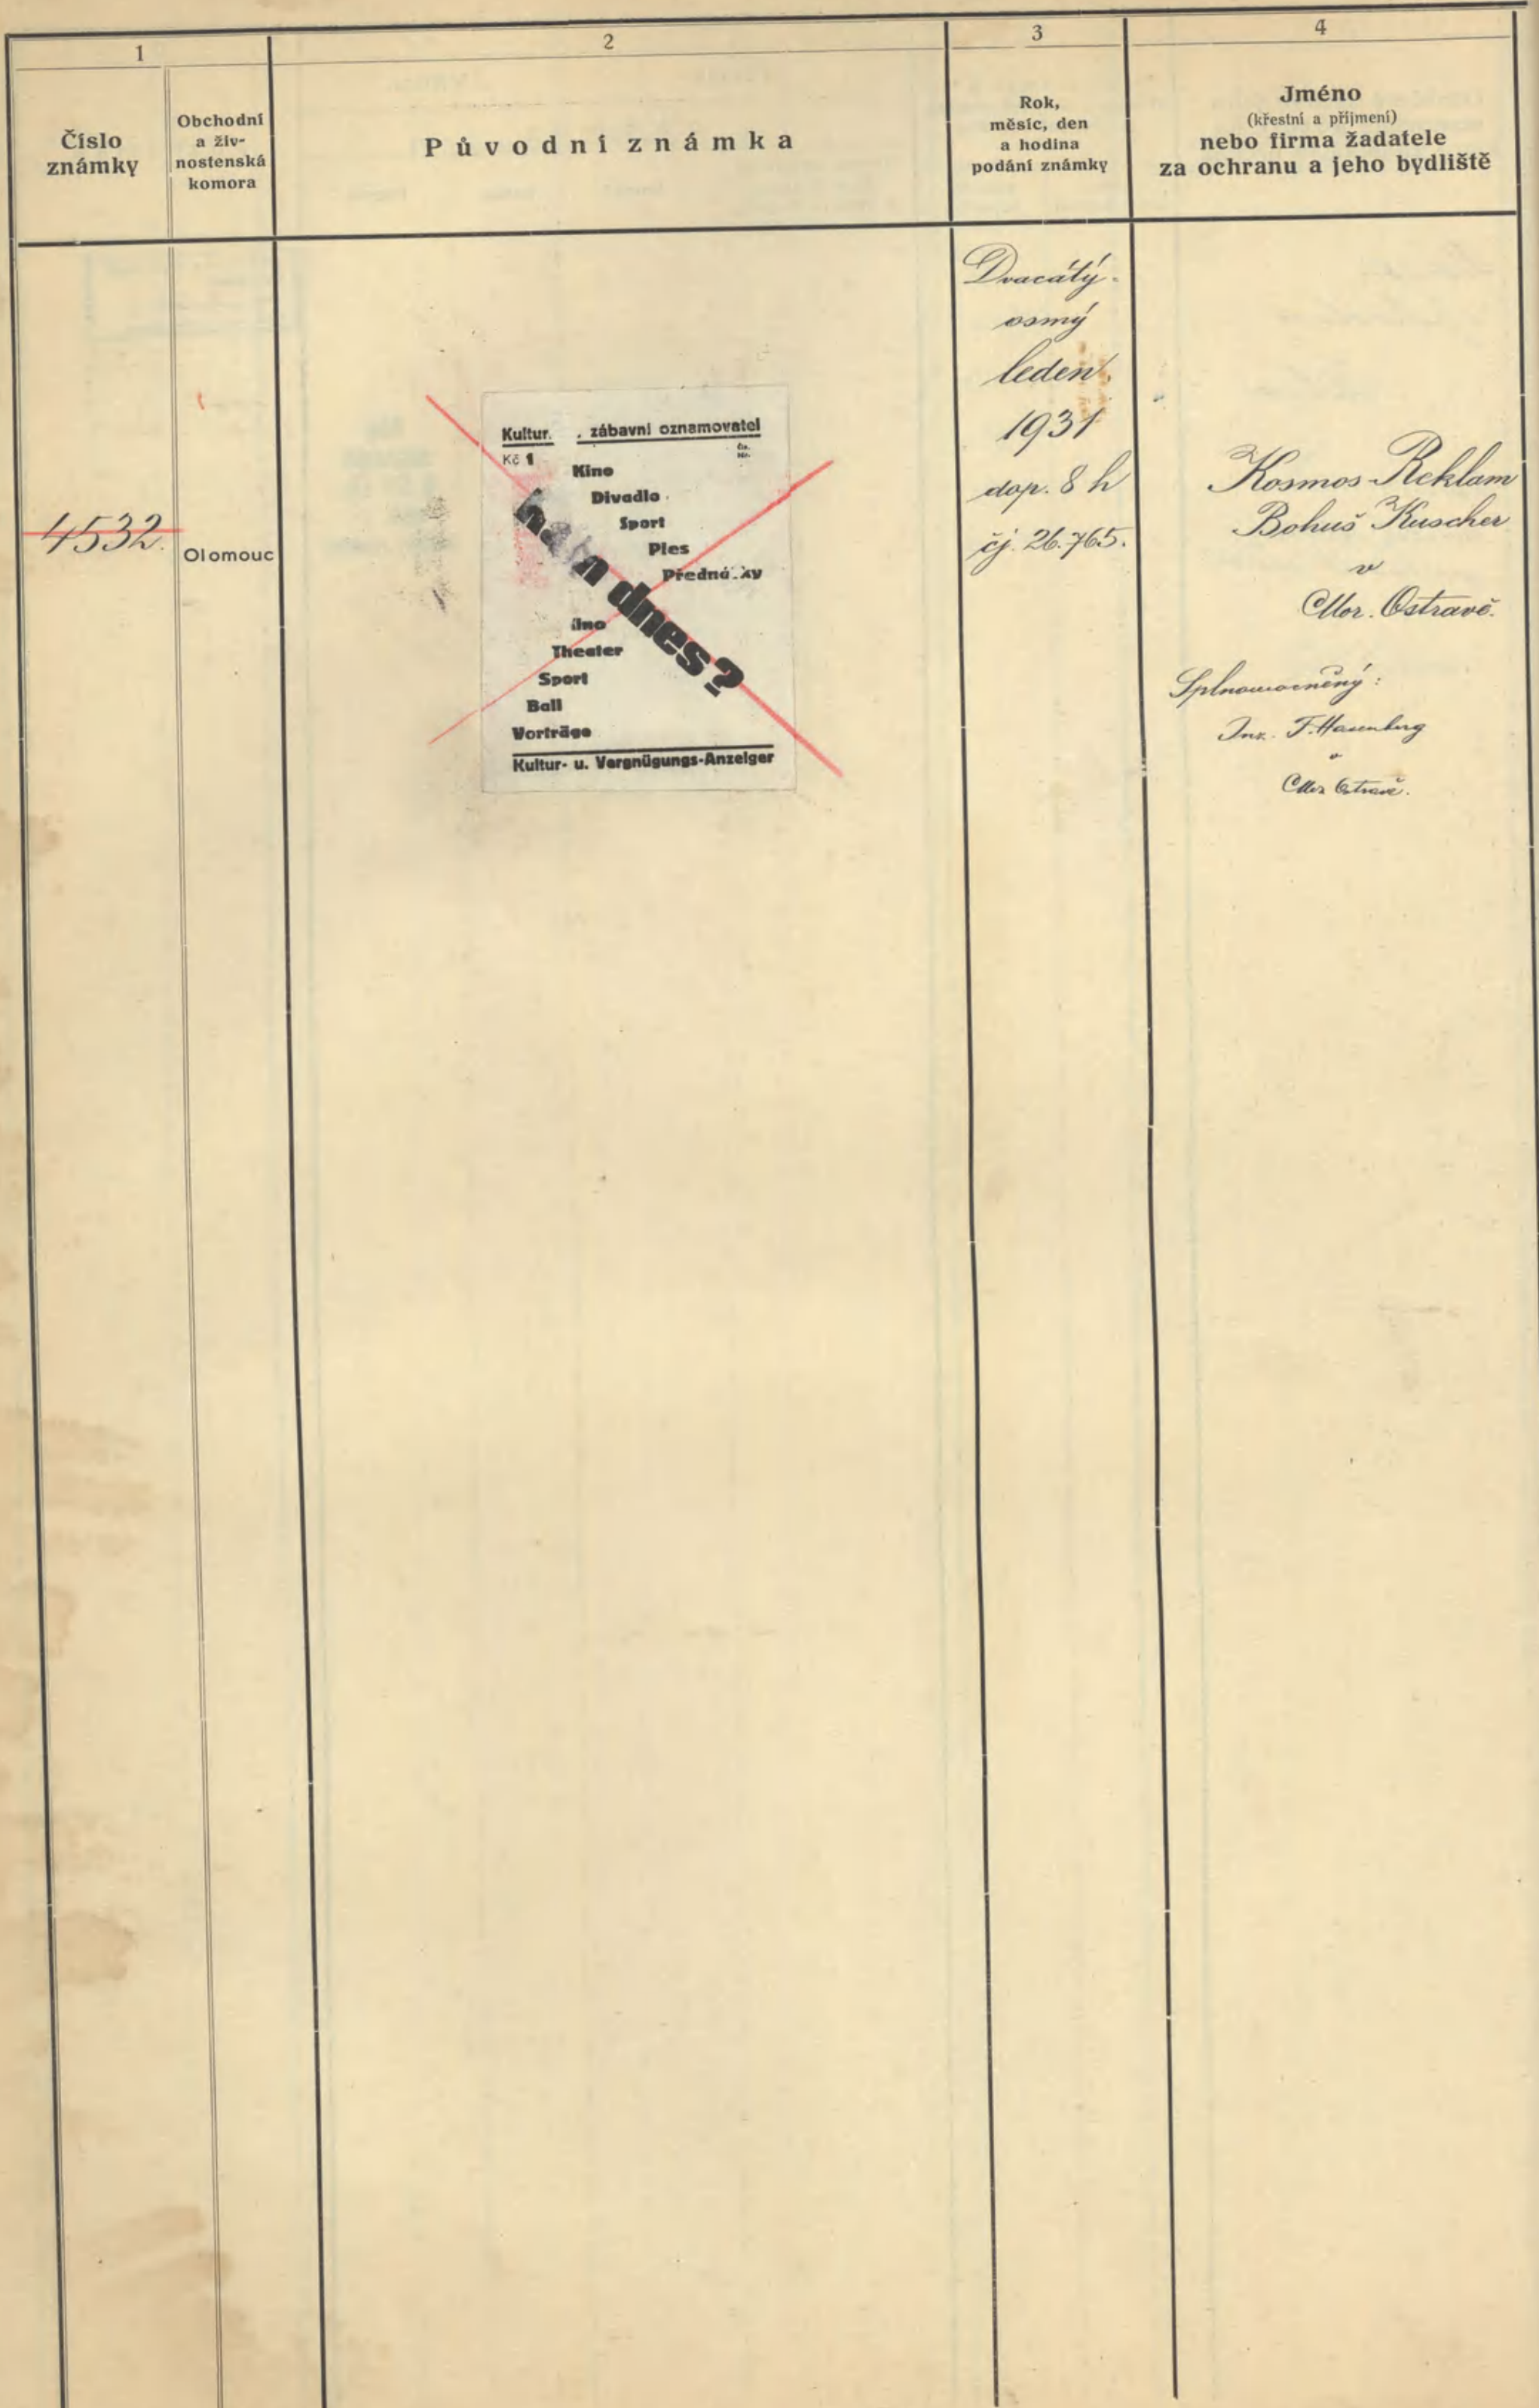 1
2
3
4
Číslo
známky
Obchodní
a živ-
nostenská
komora
Původní známka
Rok,
měsíc, den
a hodina
podání známky
Jméno
(křestní a příjmení)
nebo firma žadatele
za ochranu a jeho bydliště
4532.
Olomouc
Kultur. . zábavní oznamovatel
Kč 1
Kino
Divadlo
Sport
Ples
dnes?
Theater
Sport
Ball
Vorträge
Kultur- u. Vergnügungs-Anzeiger
Dvacátý-
osmý
leden
1931
dop. 8 h
čj. 26.765.
Kosmos-Reklam
Bohuš Kuscher
v
Mor. Ostravě.
Splnomocněný:
Ing. F. Hasenberg
v
Mor. Ostravě.